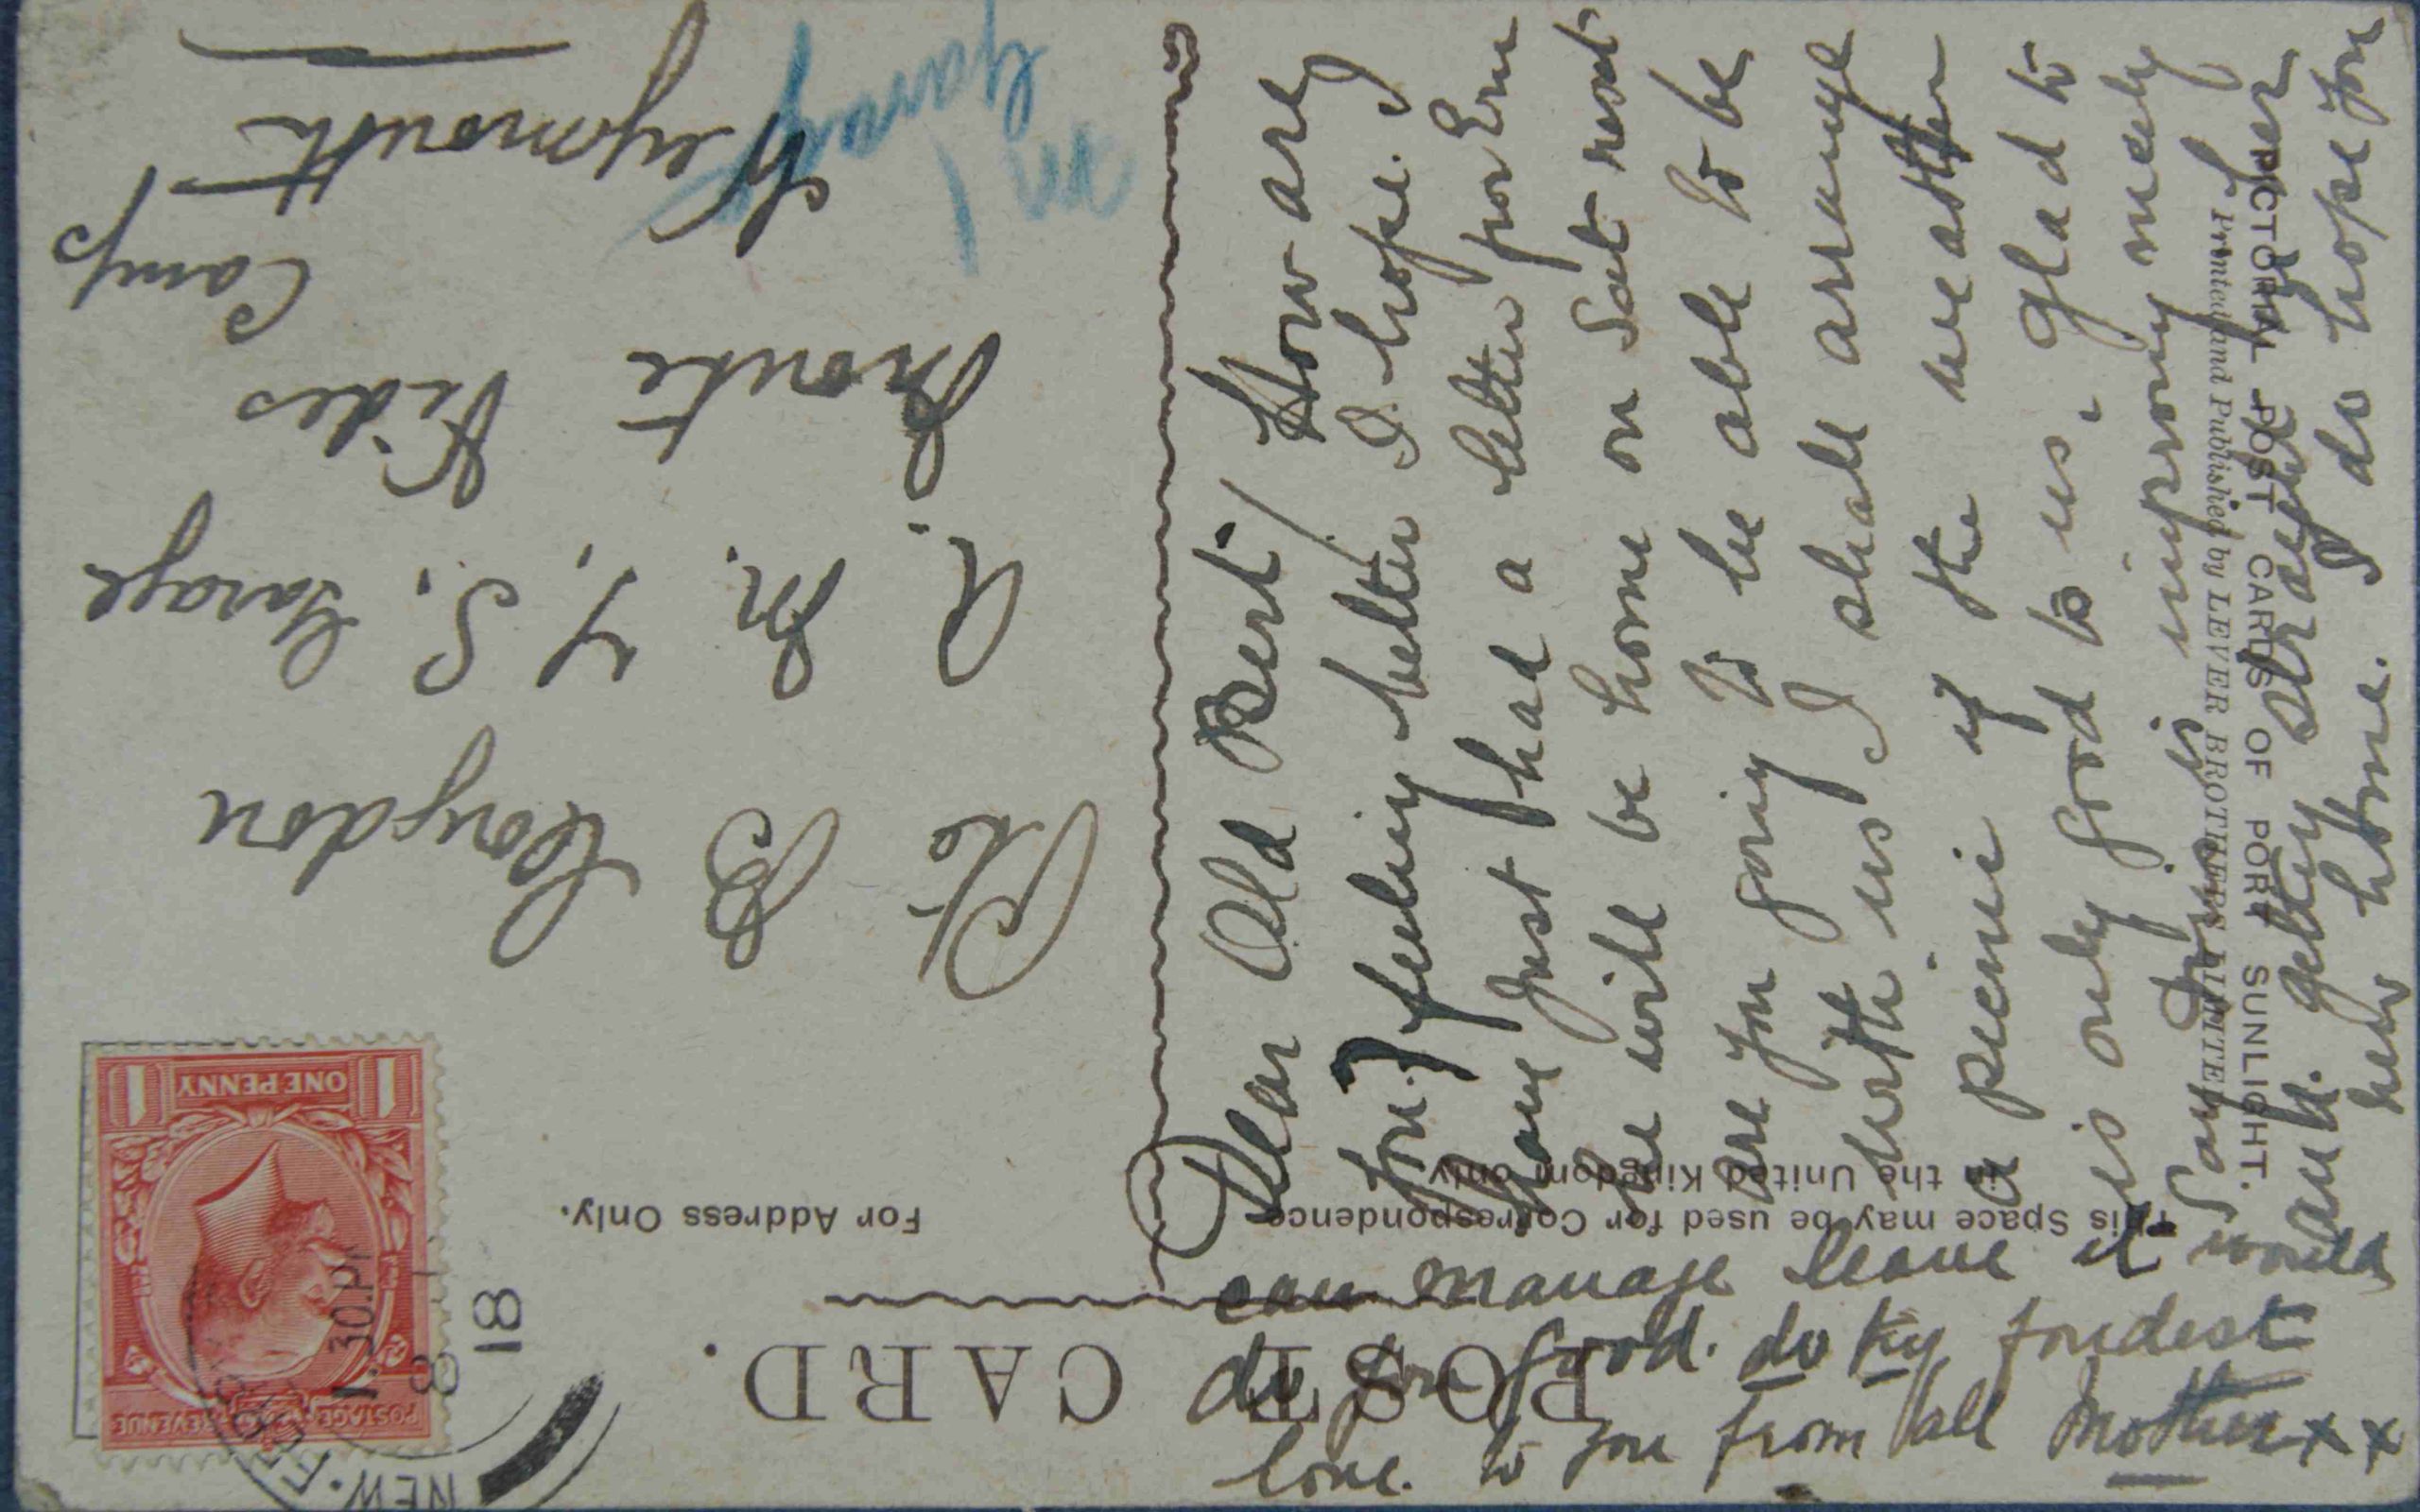 POST CARD.
This Space may be used for Correspondence
in the United Kingdom only
For Address Only.
POSTAGE REVENUE
ONE PENNY
1 1
NEW
1.30 PM
8
18
Pte B Congdon
R. M. T. S. Garage
Proute Kides Camp
Weymouth
M T
Garage
Dear Old Bert/ How are
you feeling better I hope. I
have Just had a letter for Ern
he will be home on Sat next
are you going to be able to be
with us I shall arrange
a picnic if the weather
is only good to us. Glad to
Say is improving nicely
and getting straighter
new home. I do hope you
can manage leave it would
do you good. do try fondest
love to you from all Mother x x
PICTORIAL POST CARDS OF PORT SUNLIGHT.
Printed and Published by LEVER BROTHERS LIMITED